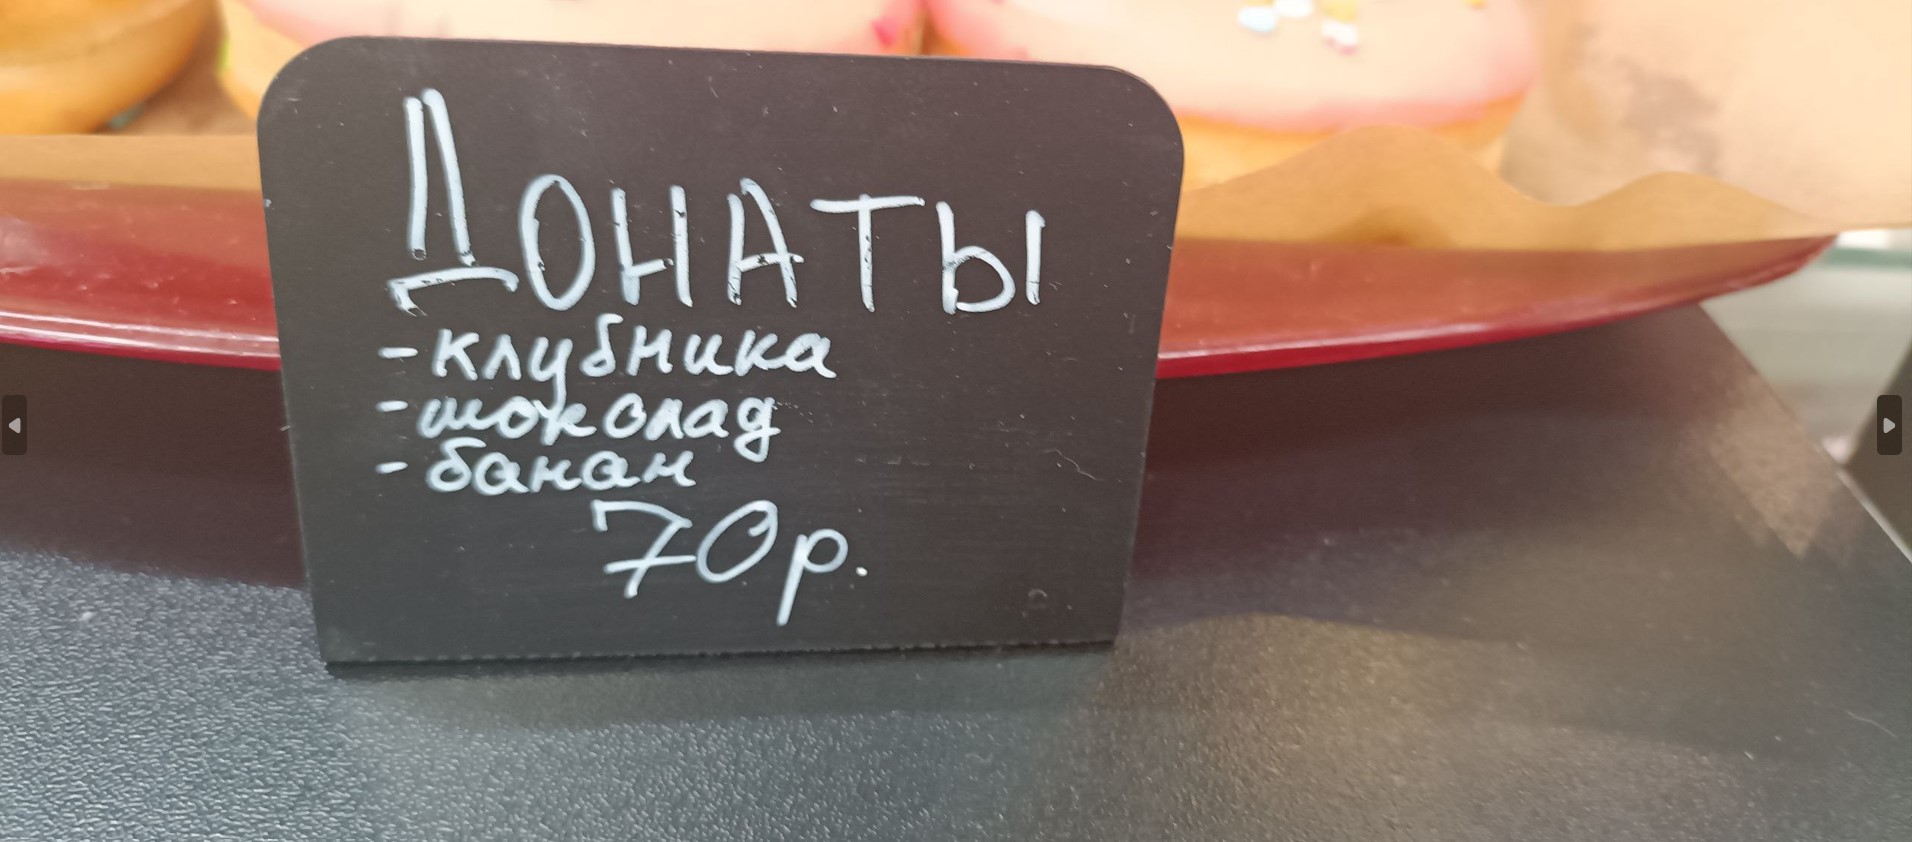 ДОНАТЫ
- клубника
- шоколад
- банан
70р.